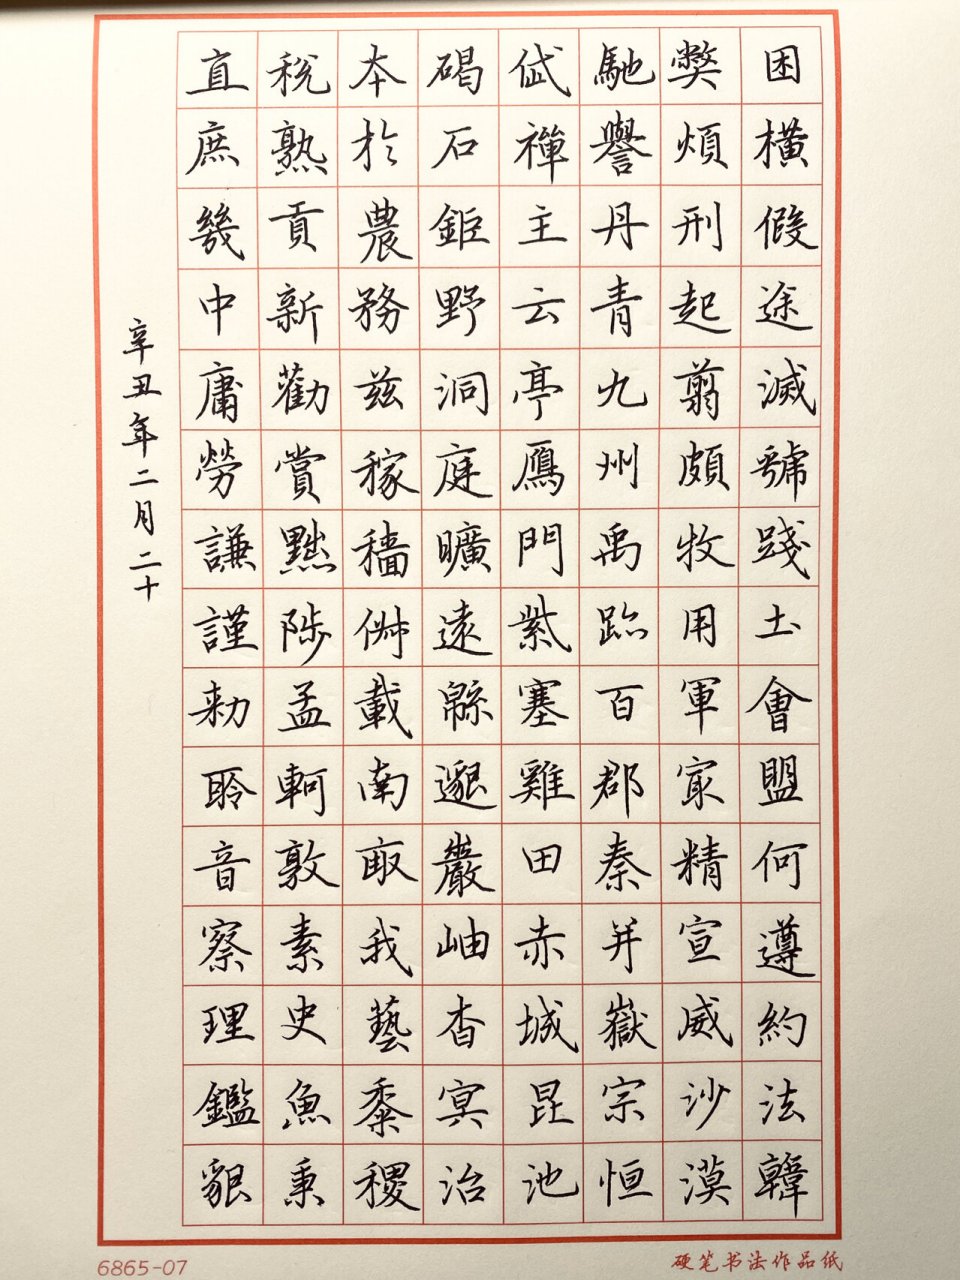 困橫假途滅虢踐土會盟何遵約法韓
獘煩刑起翦頗牧用軍㝡精宣威沙漠
馳譽丹青九州禹跡百郡秦并嶽宗恒
岱禪主云亭鴈門紫塞雞田赤城昆池
碣石鉅野洞庭曠遠緜邈巖岫杳冥治
本於農務茲稼穡俶載南畝我藝黍稷
稅熟貢新勸賞黜陟孟軻敦素史魚秉
直庶幾中庸勞謙謹勑聆音察理鑑貌
辛丑年二月二十
6865-07
硬笔书法作品纸